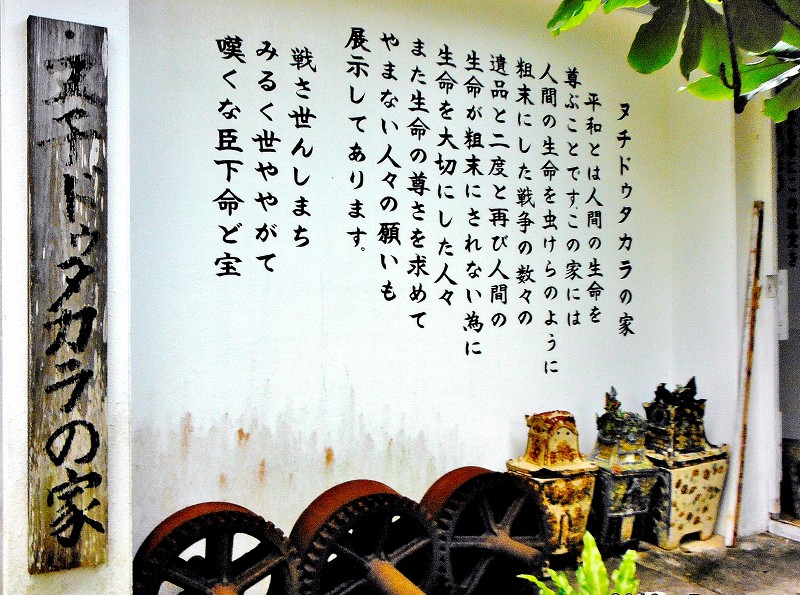 ヌチドゥタカラの家
平和とは人間の生命を
尊ぶことです。この家には
人間の生命を虫けらのように
粗末にした戦争の数々の
遺品と二度と再び人間の
生命が粗末にされない為に
生命を大切にした人々
また生命の尊さを求めて
やまない人々の願いも
展示してあります。
戦さ世んしまち
みるく世ややがて
嘆くな臣下命ど宝
ヌチドゥタカラの家